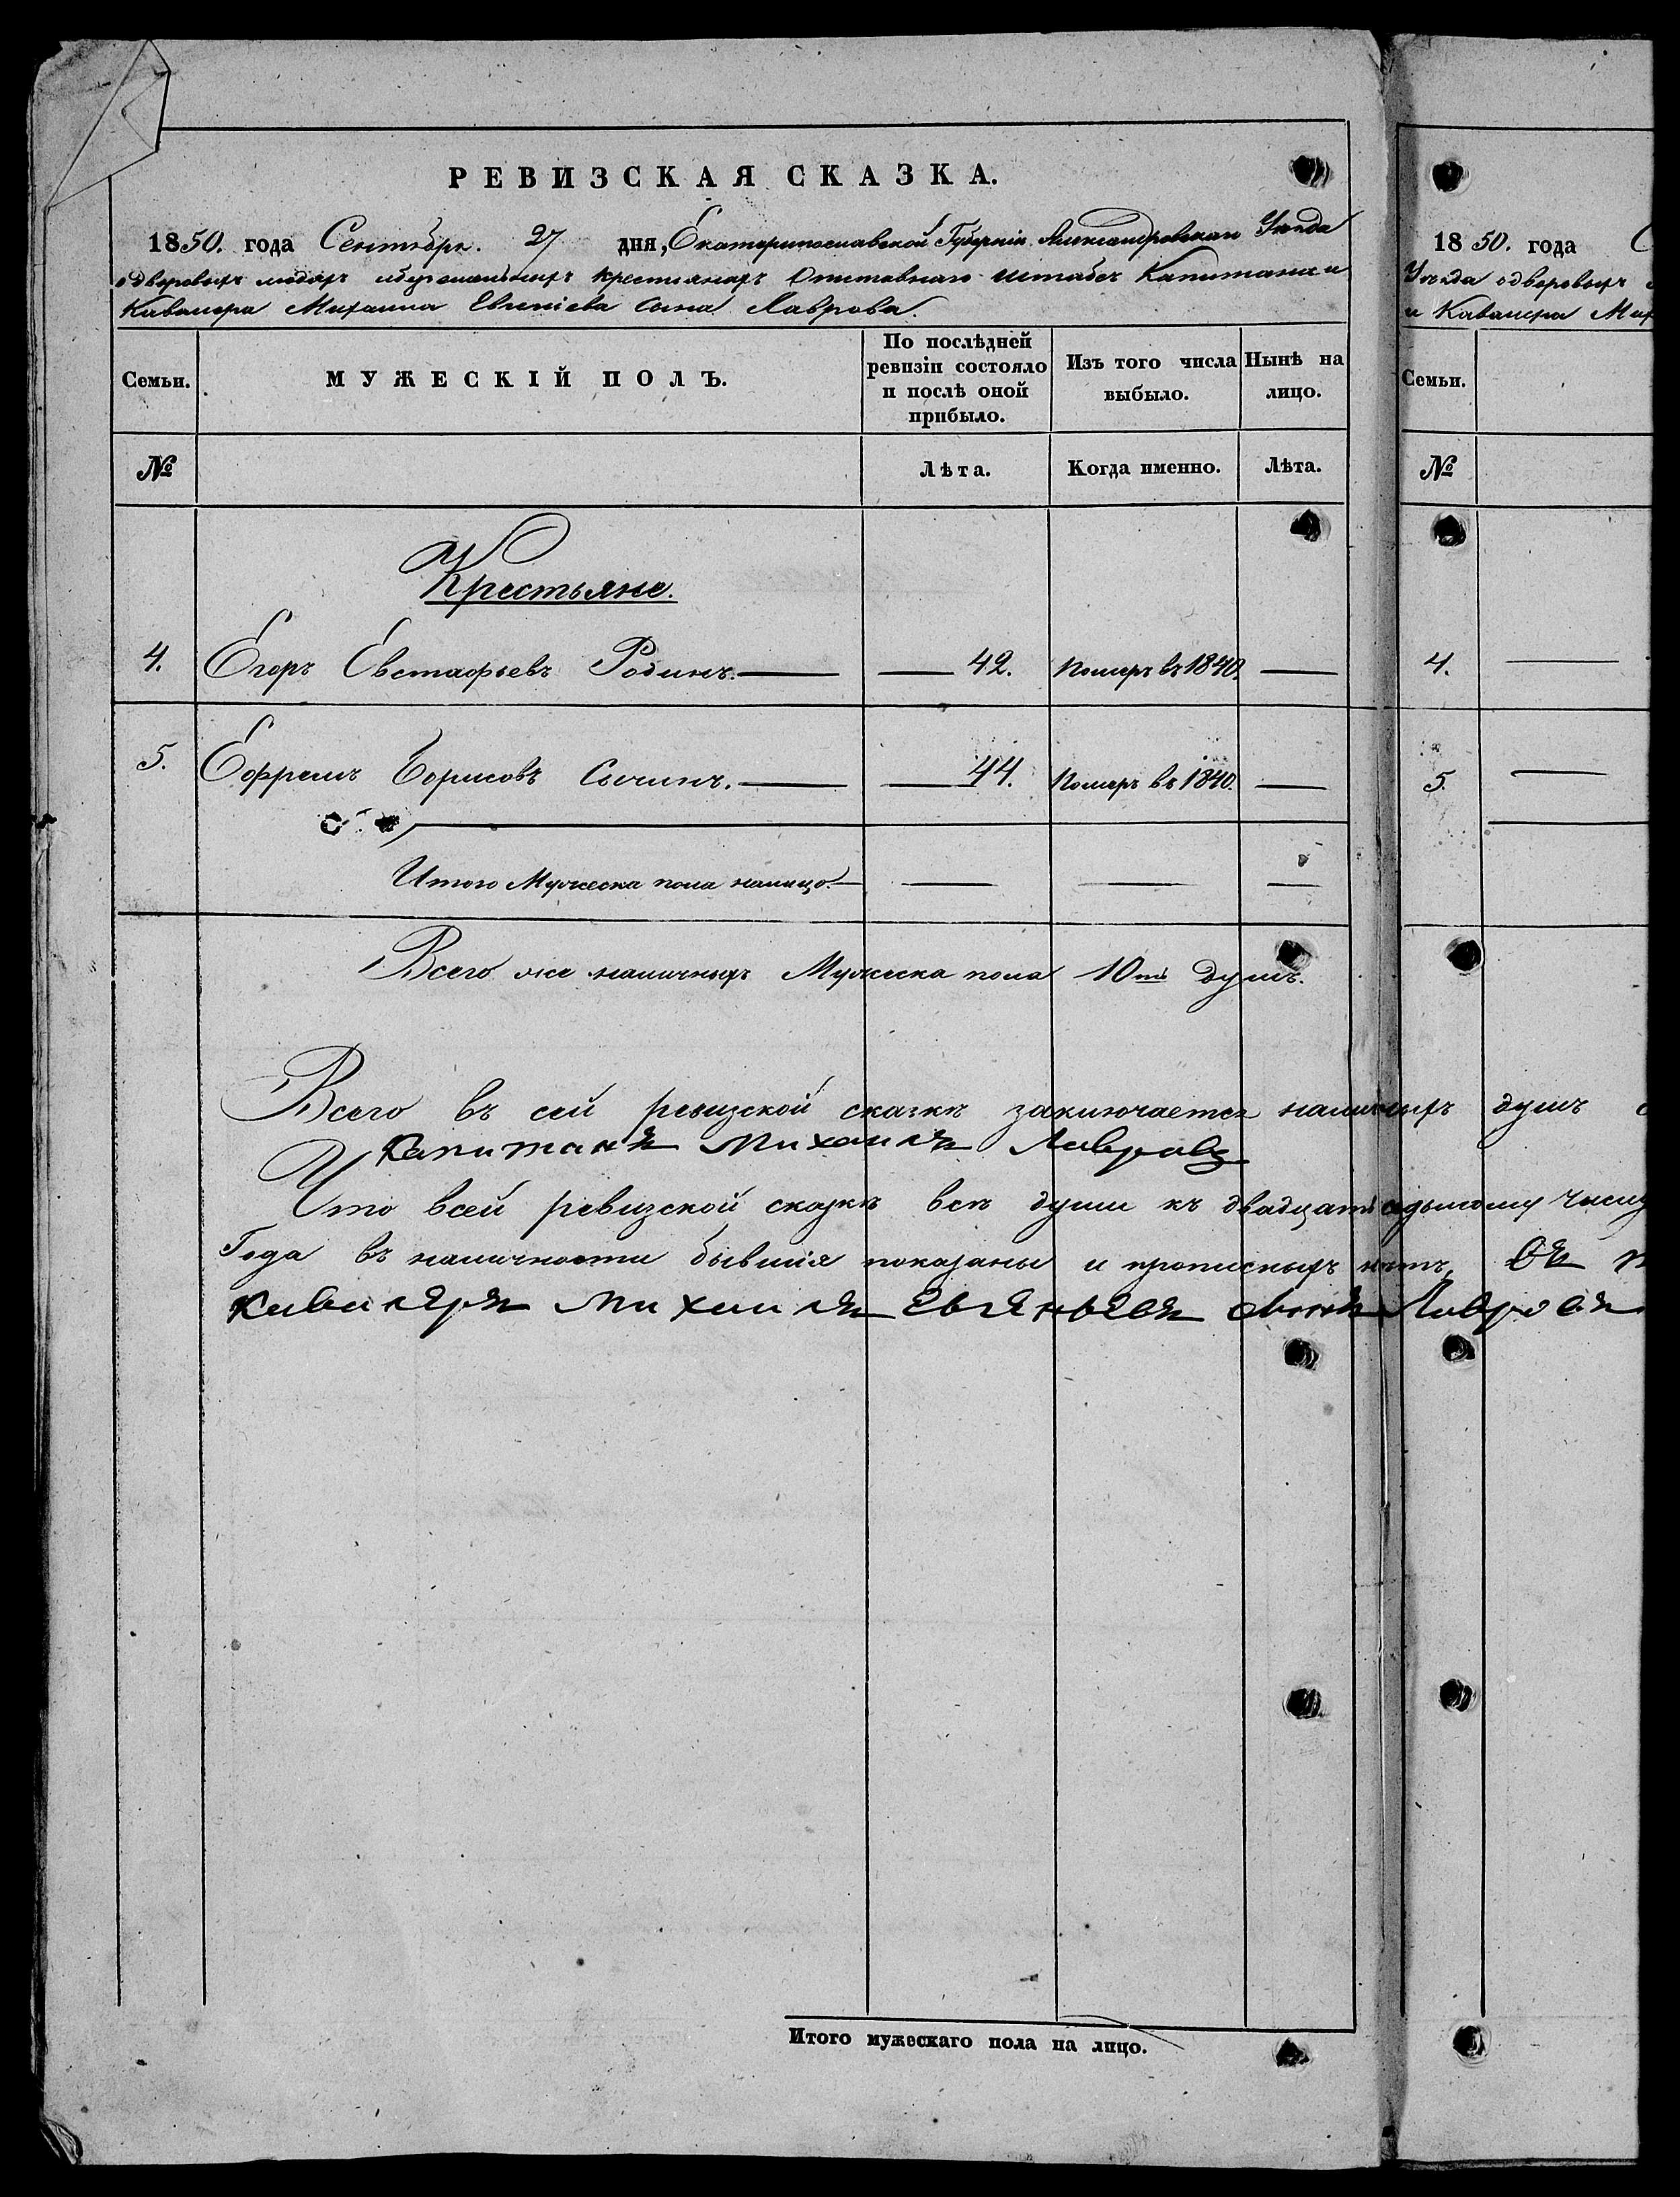 РЕВИЗСКАЯ СКАЗКА.
1850. года Сентября. 27 дня, Екатеринославской Губерніи Александровскаго Уѣзда
о дворовыхъ людяхъ крестьянахъ Отставнаго штабсъ Капитана и
Кавалера Михаила Евгеніева сына Лаврова.
Семьи.
МУЖЕСКІЙ ПОЛЪ.
По послѣдней
ревизіи состояло
и послѣ оной
прибыло.
Изъ того числа
выбыло.
Нынѣ на
лицо.
№
Лѣта.
Когда именно.
Лѣта.
Крестьяне.
4. Егоръ Евстафьевъ Родинъ. 42. Померъ въ 1840.
5. Ефремъ Борисовъ Сычинъ. 44. Померъ въ 1840.
Итого Мужеска пола налицо.
Всего же наличныхъ Мужеска пола 10ть душъ.
Всего въ сей ревизской сказкѣ заключается наличныхъ душъ
Капитанъ Михаилъ Лавровъ
Что всей ревизской сказкѣ всѣ души къ двадцать седьмому числу
Года въ наличности бывшія показаны и прописныхъ нѣтъ,
кавалеръ Михаилъ Евгеньевъ сынъ Лавровъ
Итого мужескаго пола на лицо.
1850. года
Уѣзда о дворовыхъ
и Кавалера Мих
Семьи.
№
4.
5.